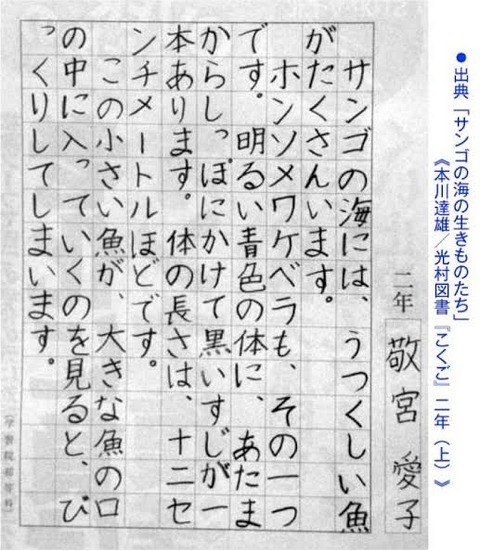 ●出典「サンゴの海の生きものたち」
《本川達雄／光村図書『こくご』二年（上）》
二年 敬宮 愛子
サンゴの海には、うつくしい魚
がたくさんいます。
ホンソメワケベラも、その一つ
です。明るい青色の体に、あたま
からしっぽにかけて黒いすじが一
本あります。体の長さは、十二セ
ンチメートルほどです。
この小さい魚が、大きな魚の口
の中に入っていくのを見ると、び
っくりしてしまいます。
（学習院初等科）